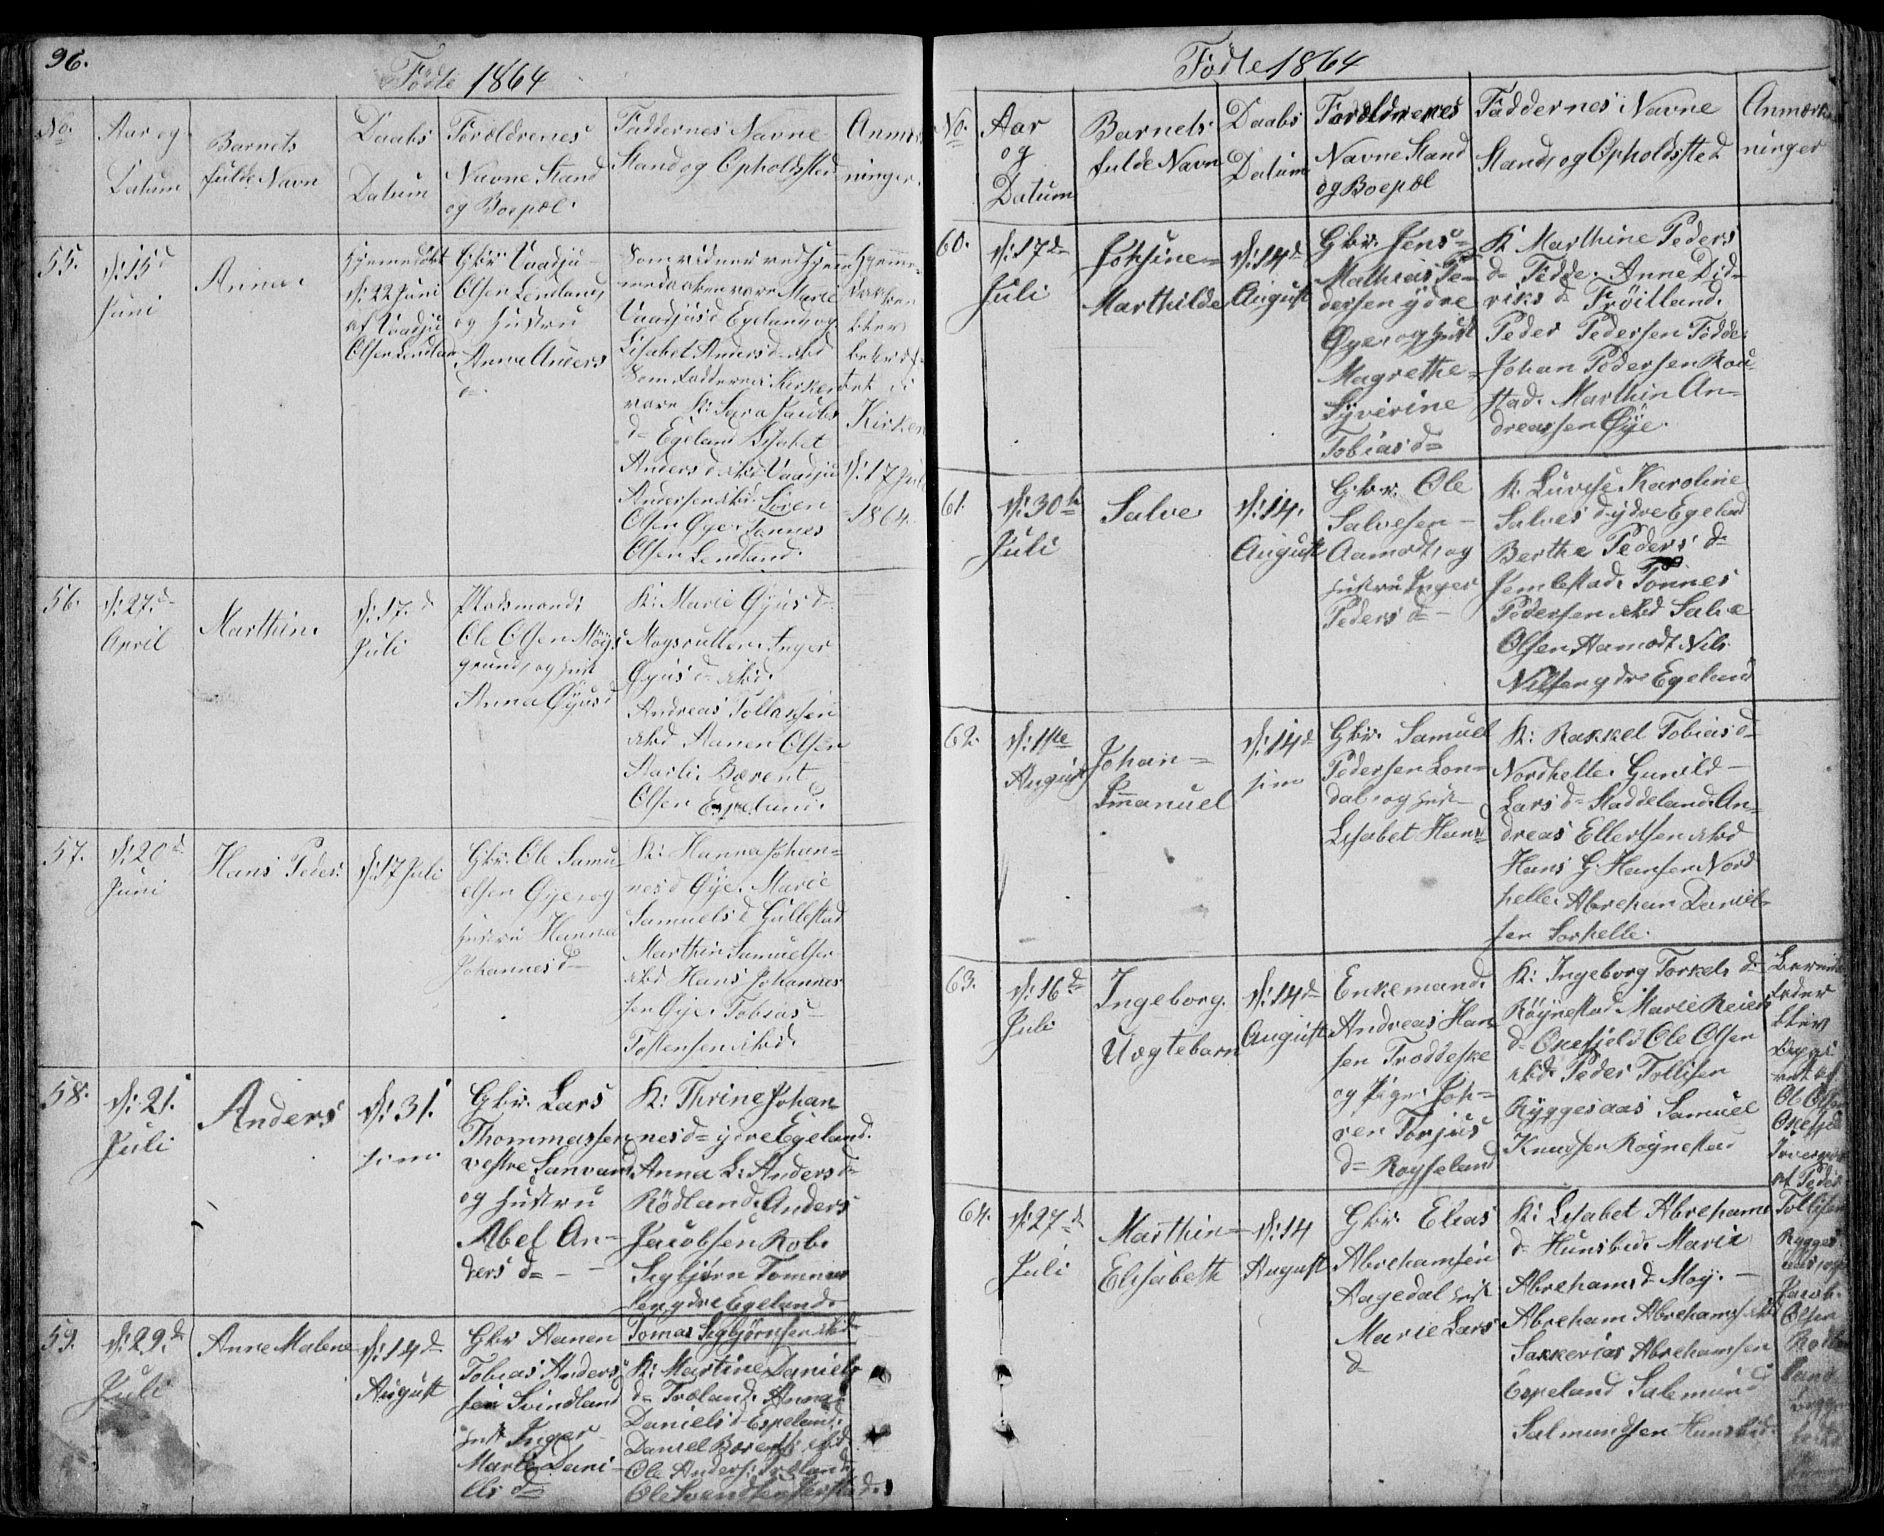 96.
Födte 1864
No.
Aar og
Datum
Barnets
fulde Navn
Daabs
Datum
Forældrenes
Navne Stand
og Boepæl.
Faddernes Navne
Stand og Opholdsted
Anmær
ninger.
55.
d: 15 d
Juni
Anna.
Hjemmedöbt
d: 22 Juni
af Vaadju
Olsen Lendland
Gbr. Vaadju
Olsen Lendland
og Hustru
Anna Anders
d.
Som vidner ved Hjem
medaaben vare Marie
Vaadjus d Egeland og
Lisabet Anders d ibd
Som Faddere i Kirken
vare K: Sara Jacobs
d= Egeland Lisabet
Anders d ibd Vaadju
Andersen ibd. Sören
Olsen Öye. Tönnes
Olsen Lendland.
Hjemme
daaben
blev
bekræf
tet i
Kirken
d: 17 Juli
1864.
56.
d: 27. d
April
Marthin.
d: 17. d
Juli
Pladsmand
Ole Olsen Möys
grund, og Hust
Anna Öyus d
K: Marie Öyus d
Inger
Öyus d= ibd.
Andreas Tollaksen
ibd Aanen Olsen
Aarli. Bærent
Olsen Espeland.
57.
d: 20 d
Juni
Hans Peder.
d: 17 Juli
Gbr. Ole Samu
elsen Öye og
Hustru Hanna
Johannes d=
K: Hanna Johan=
nes d Öye. Marie
Samuels d Gullestad
Marthin Samuelsen
ibd Hans Johannes
sen Öye. Tobias
Tostensen ibd.
58.
d: 21.
Juli
Anders
d: 31.
sim.
Gbr. Lars
Thommassen
vestre Lanvand
og Hustru
Abel An=
ders d=
K: Thrine Johan
nes d= ydre Egeland.
Anna L: Anders d=
Rödland. Anders
Jacobsen Rob.
Sigbjörn Tommes
sen ydre Egeland.
Tomas Sigbjörnsen ibd
59.
d: 29. d
Juli
Anne Malene
d: 14 d
August
Gbr Aanen
Tobias Anders
sen Svindland
Hust Inger
Marie Dani
els d=
K: Martine Daniels
d= Træland. Anna
Daniels d Espeland.
Daniel Bærents. ibd
Ole Anders. Træland
Ole Svendsen
Födte 1864
No.
Aar
og
Datum
Barnets
fulde Navn
Daabs
Datum
Forældrenes
Navne Stand
og Boepæl
Faddernes Navne
Stand, og Opholdsted
Anmærk
ninger
60.
d: 17 d=
Juli
Johsine=
Marthilde
d: 14 d=
August
Gbr. Jens=
Mathias Pe=
dersen ydre
Öye. og Hust
Magrethe=
Syverine
Tobias d=
K Marthine Peders
d= Födde. Anne Did=
riks d Fröitland.
Peder Pedersen Födde.
Johan Pedersen Rou
stad. Marthin An=
dreassen Öye.
61.
d: 30 te
Juli
Salve
d: 14.
August
Gbr. Ole
Salvesen
Aamodt, og
Hustru Inger
Peders d=
K. Luvise Karoline
Salves d ydre Egeland
Berthe Peders d=
Jemlestad. Tönnes
Pedersen ibd Salve
Olsen Aamodt Nils
Nilsen ydre Egeland
62.
d: 1ste
August
Johan=
Imanuel
d: 14 d
sim
Gbr. Samuel
Pedersen Lon=
dal og Hust
Lisabet Hans d=
K: Rakkel Tobias d=
Nordhelle. Gunild
Lars d= Staddeland. An=
dreas Ellertsen ibd
Hans G. Hansen Nord
helle. Abreham Daniel=
sen Sorhelle.
63.
d: 16 d=
Juli
Ingeborg.
Uægtebarn
d: 14 d=
August
Enkemand.
Andreas Han
sen Troddeske
og Pige. Joh=
ren Torjus
d= Roysland
K: Ingeborg Torkels d=
Röynestad Marie Reiers
d= Okefjeld Ole Olsen
ibd. Peder Tollisen
Ryggesaas Samuel
Knudsen Röynestad
blev
af
Ole Olsen
Okefjeld
af Peder
Tollisen
Rygges
aas og
Jacob
Olsen
64.
d: 27 d
Juli
Marthin=
Elisabeth
d: 14
August
Gbr. Elias
Abrehamsen
Aagedal Hust
Marie Lars
d=
K: Lisabet Abrehams
d= Hunsbed. Marie
Abrehams d Moy.
Abreham Abrehamsen ibd
Sakkerias Abrehamsen
Espeland Salemund
Salmundsen Hunsbed.